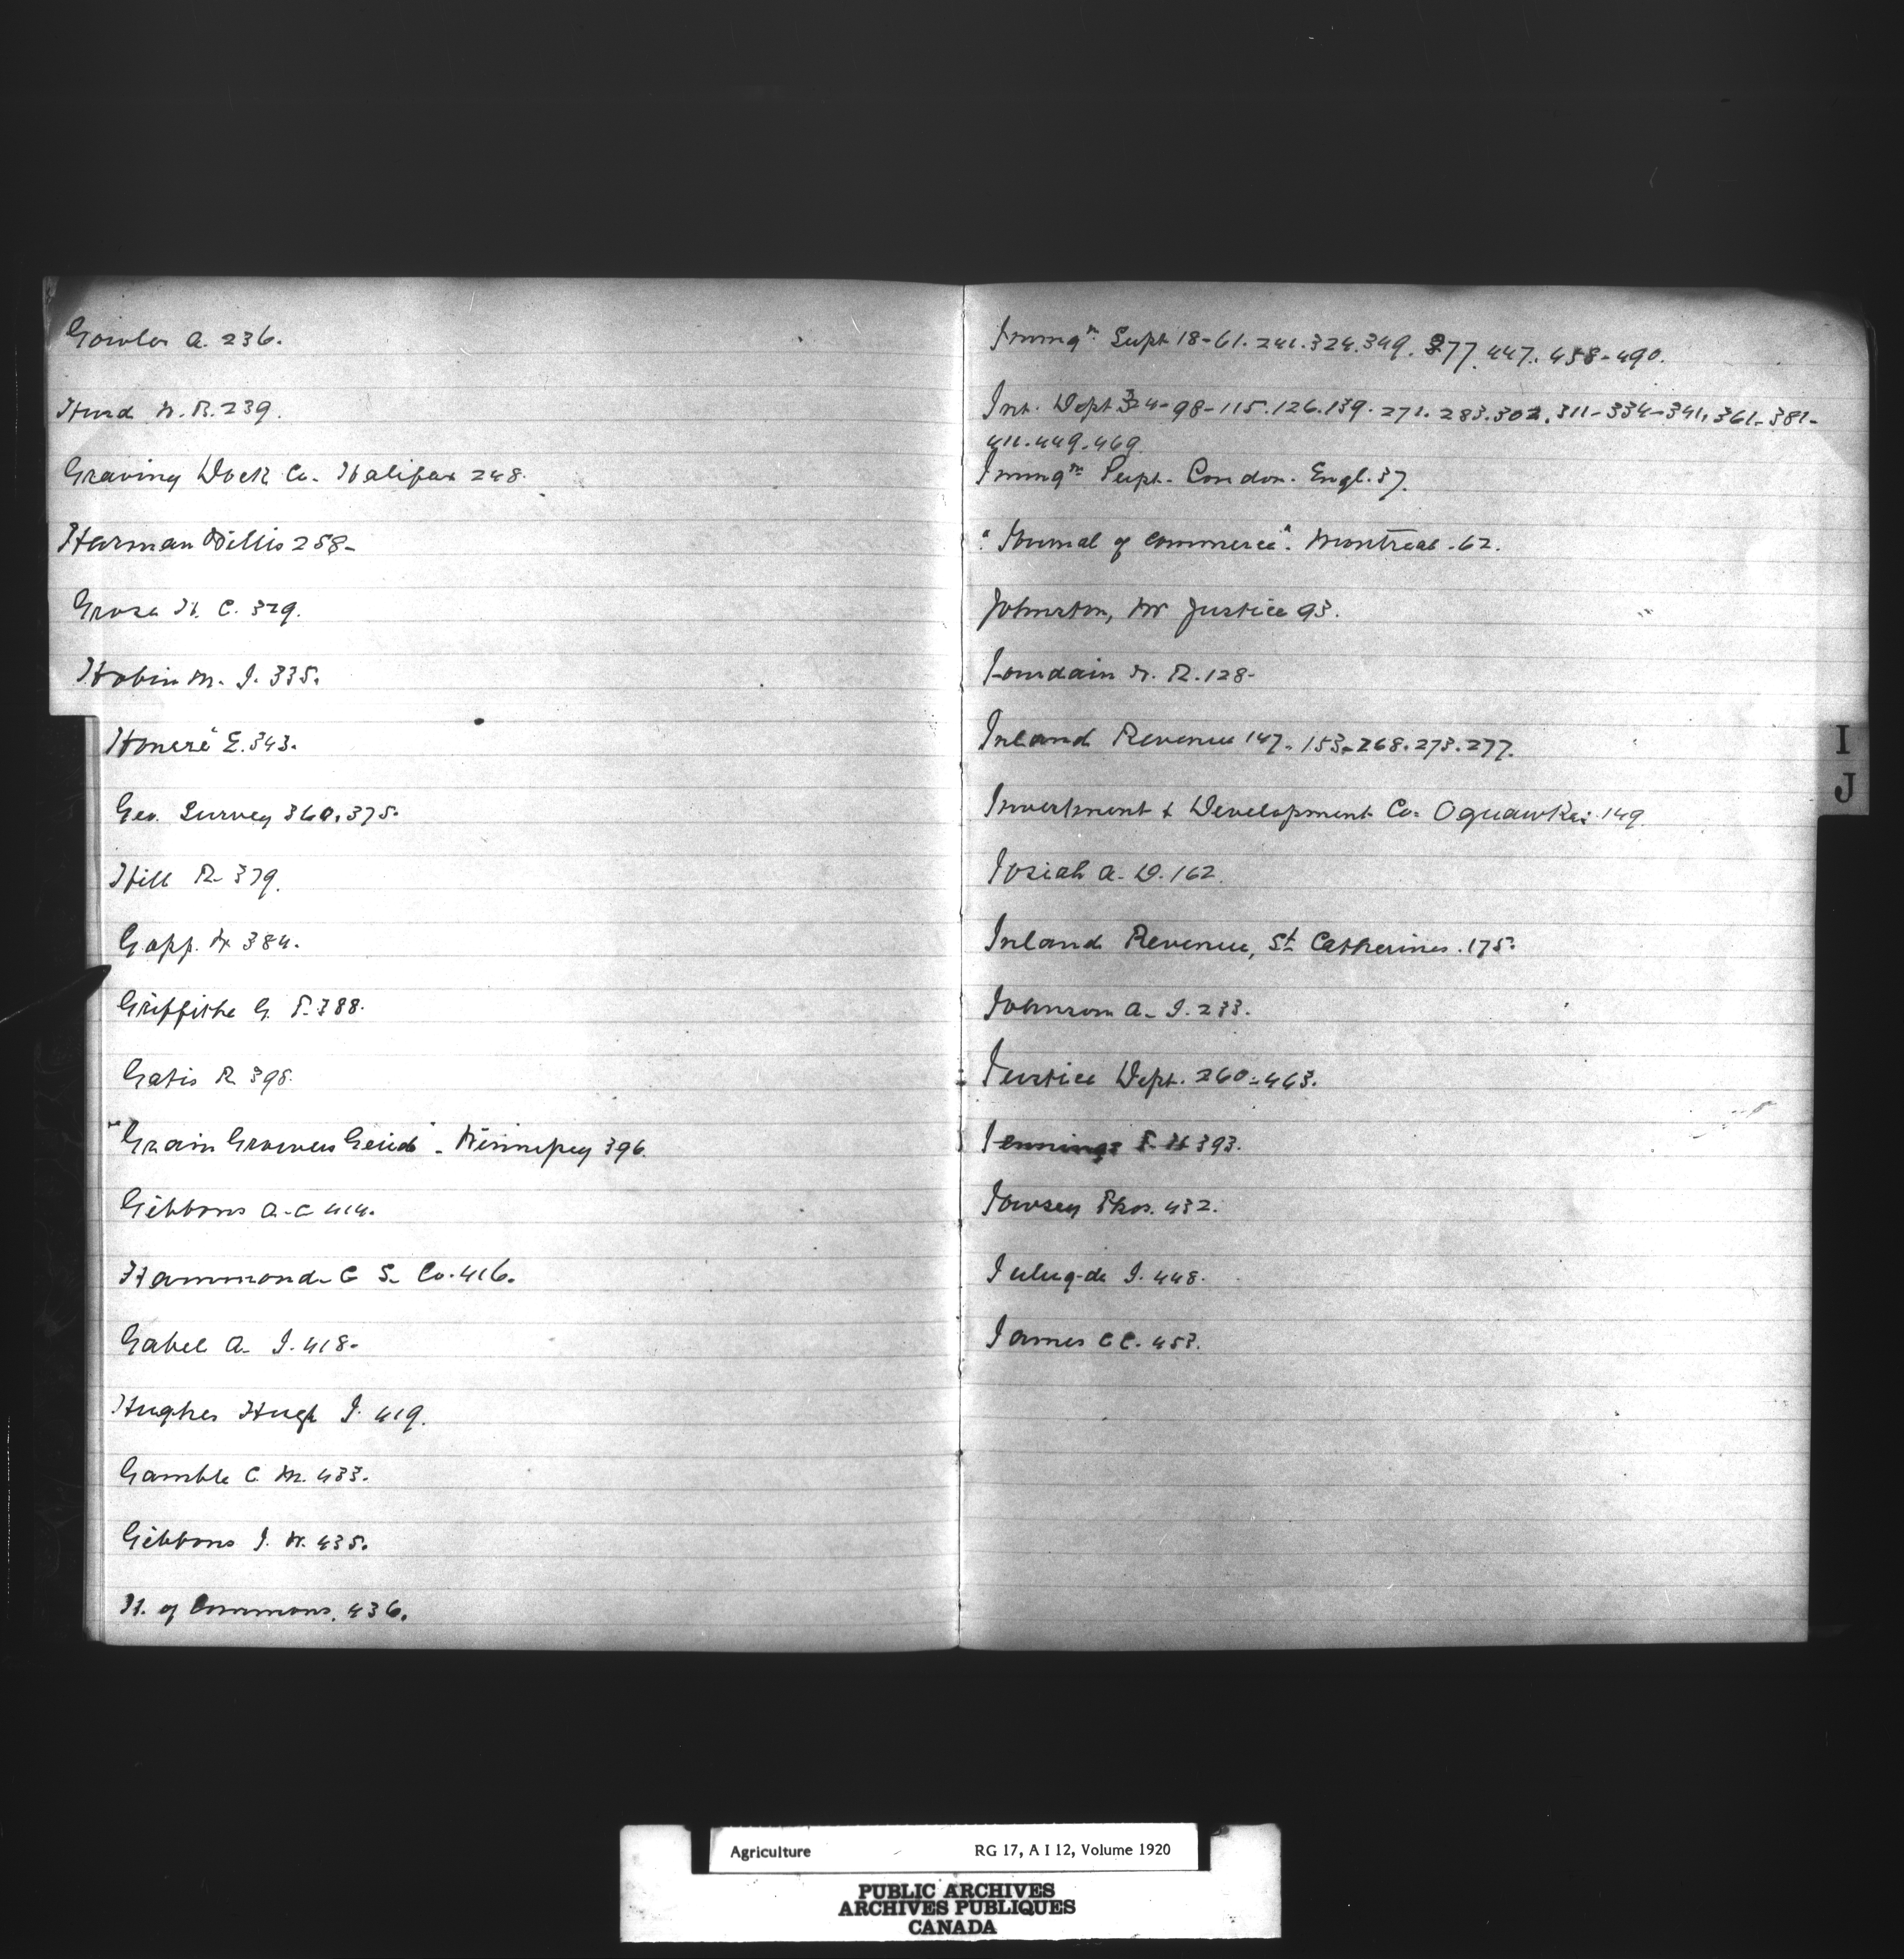 Gowler A. 236.
Hurd W. B. 239.
Graving Dock Co. Halifax 248.
Harman Willis 258-
Grose H. C. 329.
Hobin M. J. 335.
Honeré E. 343.
Geo. Survey 360. 375.
Hill R. 379.
Gapp. W 384.
Griffiths G. T. 388.
Gatis R. 398.
"Grain Growers Guide" - Winnipeg 396.
Gibbons A. C 414.
Hammond C S. Co. 416.
Gabel A. J. 418-
Hughes Hugh J. 419.
Gamble C. M. 433.
Gibbons J. W. 435.
H. of Commons. 436.
Immigⁿ. Supt. 18-61. 241. 324. 349. 377. 447. 458-490.
Int. Dept 324-98-115. 126. 139. 271. 283. 302. 311-334-341. 361-381-
411. 449. 469.
Immigⁿ Supt. London. Engl. 37.
"Journal of Commerce". Montreal. 62.
Johnston, Mr Justice 93.
Jourdain W. R. 128-
Inland Revenue 147. 153-268. 273. 277.
Investment & Development Co. Oquawka: 149.
Josiah A. D. 162.
Inland Revenue, St Catherines. 175.
Johnson A. J. 233.
Justice Dept. 260-463.
Jennings F. H 393.
Jowsey Thos. 432.
J. 448.
James C C. 453.
I
J
Agriculture RG 17, A I 12, Volume 1920
PUBLIC ARCHIVES
ARCHIVES PUBLIQUES
CANADA